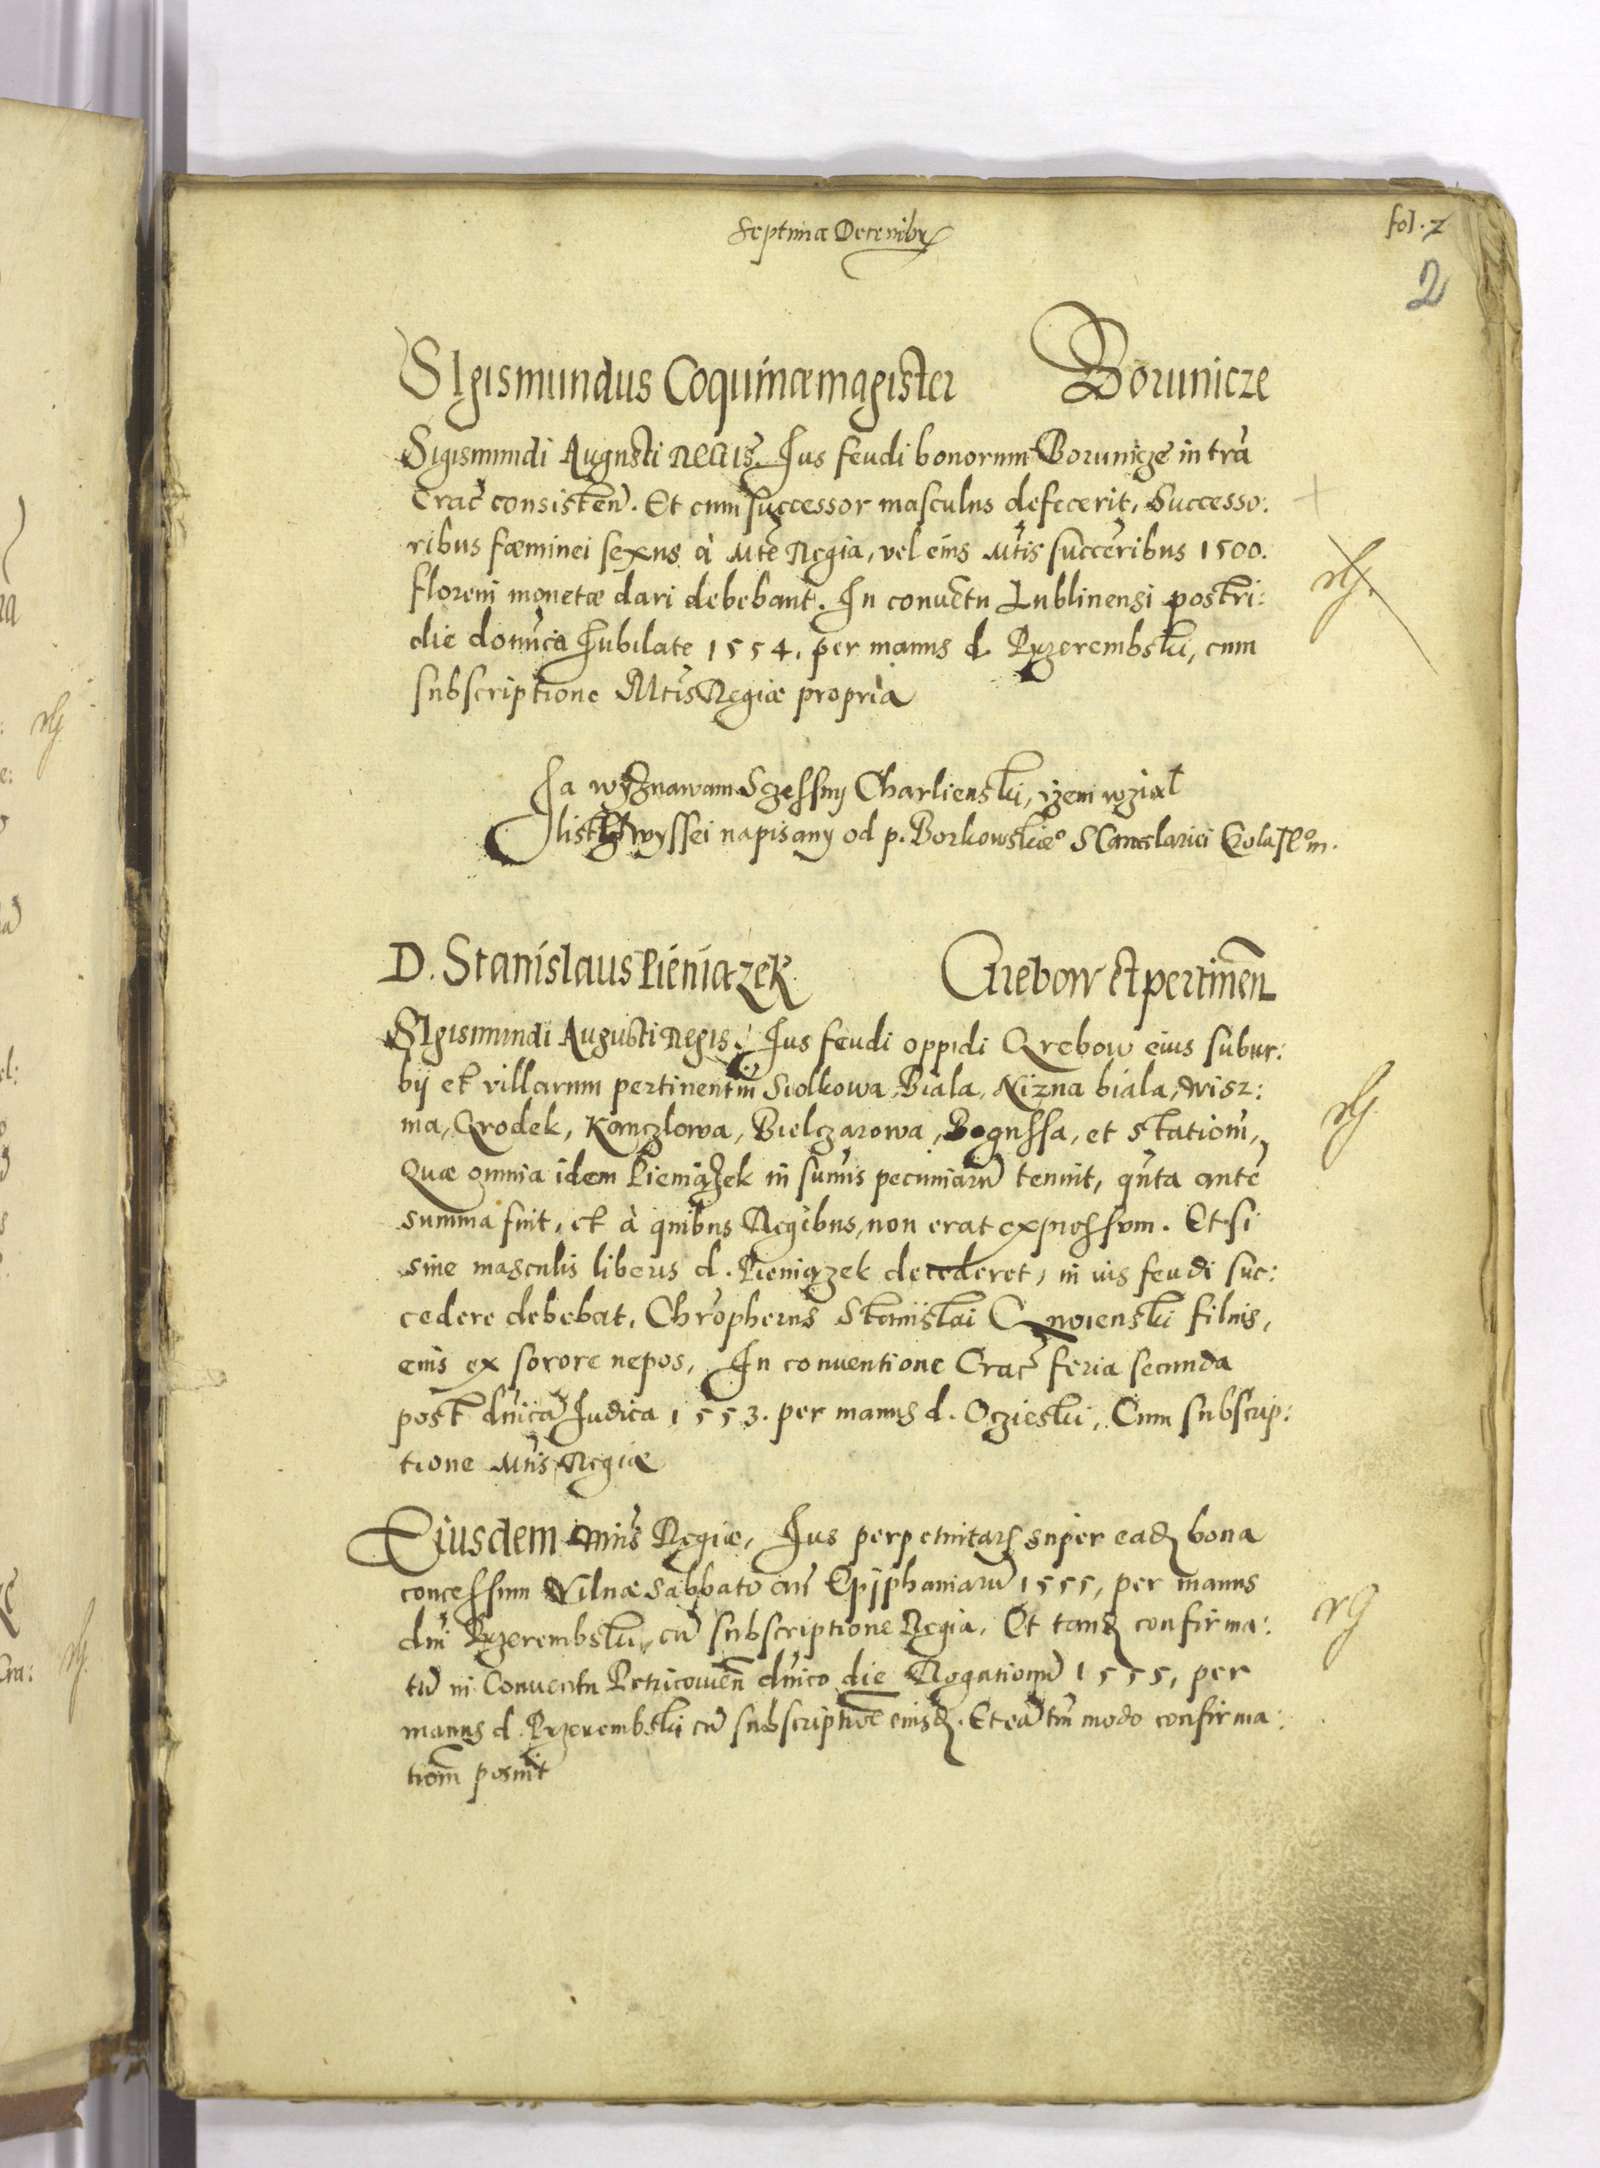 Septima Decembr
fol. 2
2
SIgismundus Coquinæ magister Borunicze
Sigismundi Augusti REGIS. Jus feudi bonorum Borunicze in tra
Crac consisten. Et cum successor masculus defecerit, Successo:
ribus fæminei sexus à Mte Regia, vel eius Mtis succeribus 1500.
floreni monetæ dari debebant. In convetu Lublinensi postri:
die donica Jubilate 1554. per manus d. Przerembski, cum
subscriptione Mtis Regiæ propria
rG.
Ja wyznawam Sczessny Charlienski, yzem wzial
list wyssei napisany od p. Borkowskie°
D. Stanislaus Pieniązek Grebow et pertinen
SIgismundi Augusti Regis. Jus feudi oppidi Grebow eius subur:
bij et villarum pertinentm Siolkowa, Biala, Nizna biala, Wisz:
ma, Grodek, Kanczlowa, Bielczarowa, Bogussa, et stationu,
Quæ omnia idem Pieniążek in sumis pecuniaru tenuit, qnta ante
summa fuit, et à quibus Regibus, non erat expressum. Et si
sine masculis liberis d. Pieniązek decederet, in ius feudi suc:
cedere debebat, Chropherus Stanislai Gnoienski filius,
eius ex sorore nepos, In conventione Crac feria secunda
post dnica Judica 1553. per manus d. Oczieski, Cum subscrip:
tione Mtis Regiæ
rG.
Eiusdem Mtis Regiæ, Jus perpetuitatis super eadem bona
concessum Vilnæ Sabbato an Epiphaniaru 1555, per manus
dni Przerembski, cu subscriptione Regia. Et tand confirma:
tu in Conventu Petricovien dnico die Rogationu 1555, per
manus d. Przerembski cu subscriptioe eiusd. Et ea tm modo confirma:
tiom posuit
rG